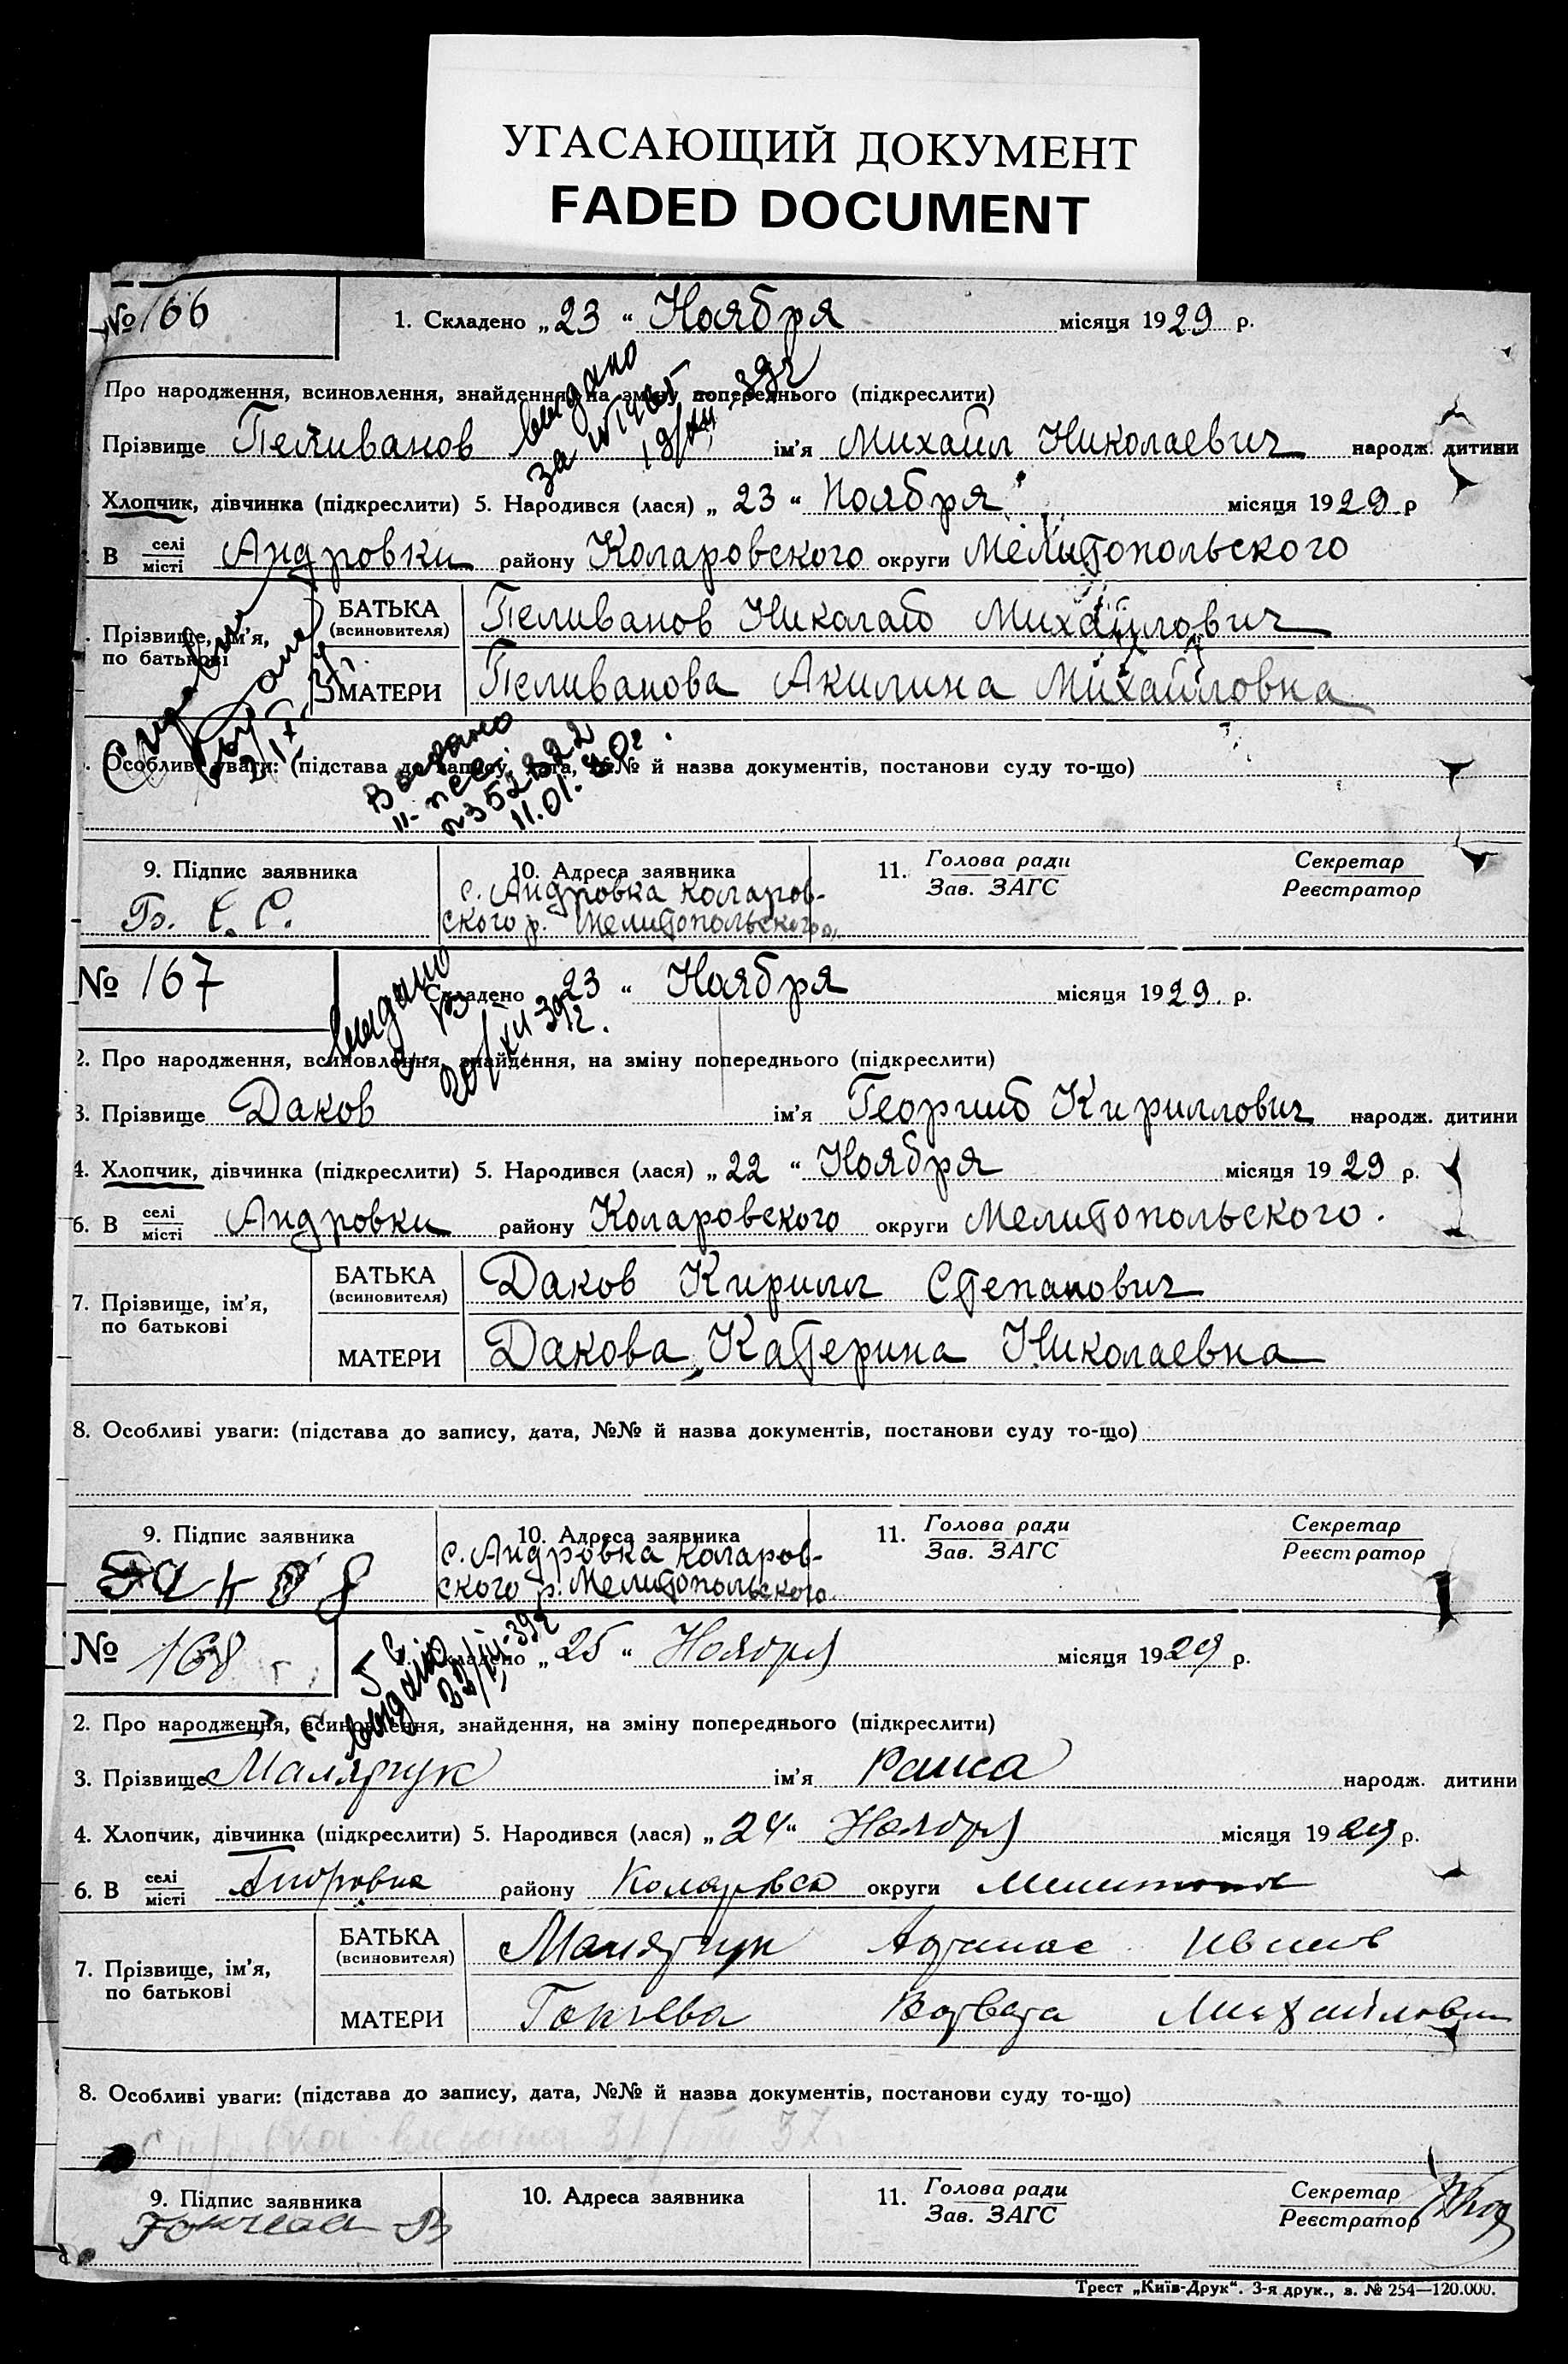 УГАСАЮЩИЙ ДОКУМЕНТ
FADED DOCUMENT
№ 166
1. Складено „ 23 “ Ноября місяця 1929 р.
Про народження, всиновлення, знайдення, на зміну попереднього (підкреслити)
видано
19/XII 39г
Прізвище Пеливанов ім'я Михаил Николаевич народж. дитини
Хлопчик, дівчинка (підкреслити) 5. Народився (лася) „ 23 “ Ноября місяця 1929 р
В селі місті Андровки району Коларовского округи Мелитопольского
Прізвище, ім'я, по батькові
БАТЬКА (всиновителя) Пеливанов Николай Михайлович
МАТЕРИ Пеливанова Акилина Михайловна
Особливі уваги: (підстава до запису, дата, №№ й назва документів, постанови суду то-що)
11.01.
9. Підпис заявника
10. Адреса заявника
с. Андровка Коларов-
ского р. Мелитопольского
11. Голова ради
Зав. ЗАГС
Секретар
Реєстратор
№ 167
Складено 23 “ Ноября місяця 1929. р.
видано
20/XII 39г.
2. Про народження, всиновлення, знайдення, на зміну попереднього (підкреслити)
3. Прізвище Даков ім'я Георгий Кириллович народж. дитини
4. Хлопчик, дівчинка (підкреслити) 5. Народився (лася) „ 22 “ Ноября місяця 1929 р.
6. В селі місті Андровки району Коларовского округи Мелитопольского.
7. Прізвище, ім'я, по батькові
БАТЬКА (всиновителя) Даков Кирилл Степанович
МАТЕРИ Дакова Катерина Николаевна
8. Особливі уваги: (підстава до запису, дата, №№ й назва документів, постанови суду то-що)
9. Підпис заявника
Даков
10. Адреса заявника
с. Андровка Коларов-
ского р. Мелитопольского
11. Голова ради
Зав. ЗАГС
Секретар
Реєстратор
№ 168
Складено „ 25 “ Ноября місяця 1929 р.
видано
2. Про народження, всиновлення, знайдення, на зміну попереднього (підкреслити)
3. Прізвище Малярчук ім'я Раиса народж. дитини
4. Хлопчик, дівчинка (підкреслити) 5. Народився (лася) „ 24 “ Ноября місяця 1929 р.
6. В селі місті Андровка району округи
7. Прізвище, ім'я, по батькові
БАТЬКА (всиновителя) Малярчук
МАТЕРИ Варвара
8. Особливі уваги: (підстава до запису, дата, №№ й назва документів, постанови суду то-що)
9. Підпис заявника
10. Адреса заявника
11. Голова ради
Зав. ЗАГС
Секретар
Реєстратор
Трест „Київ-Друк“. 3-я друк., з. № 254—120.000.